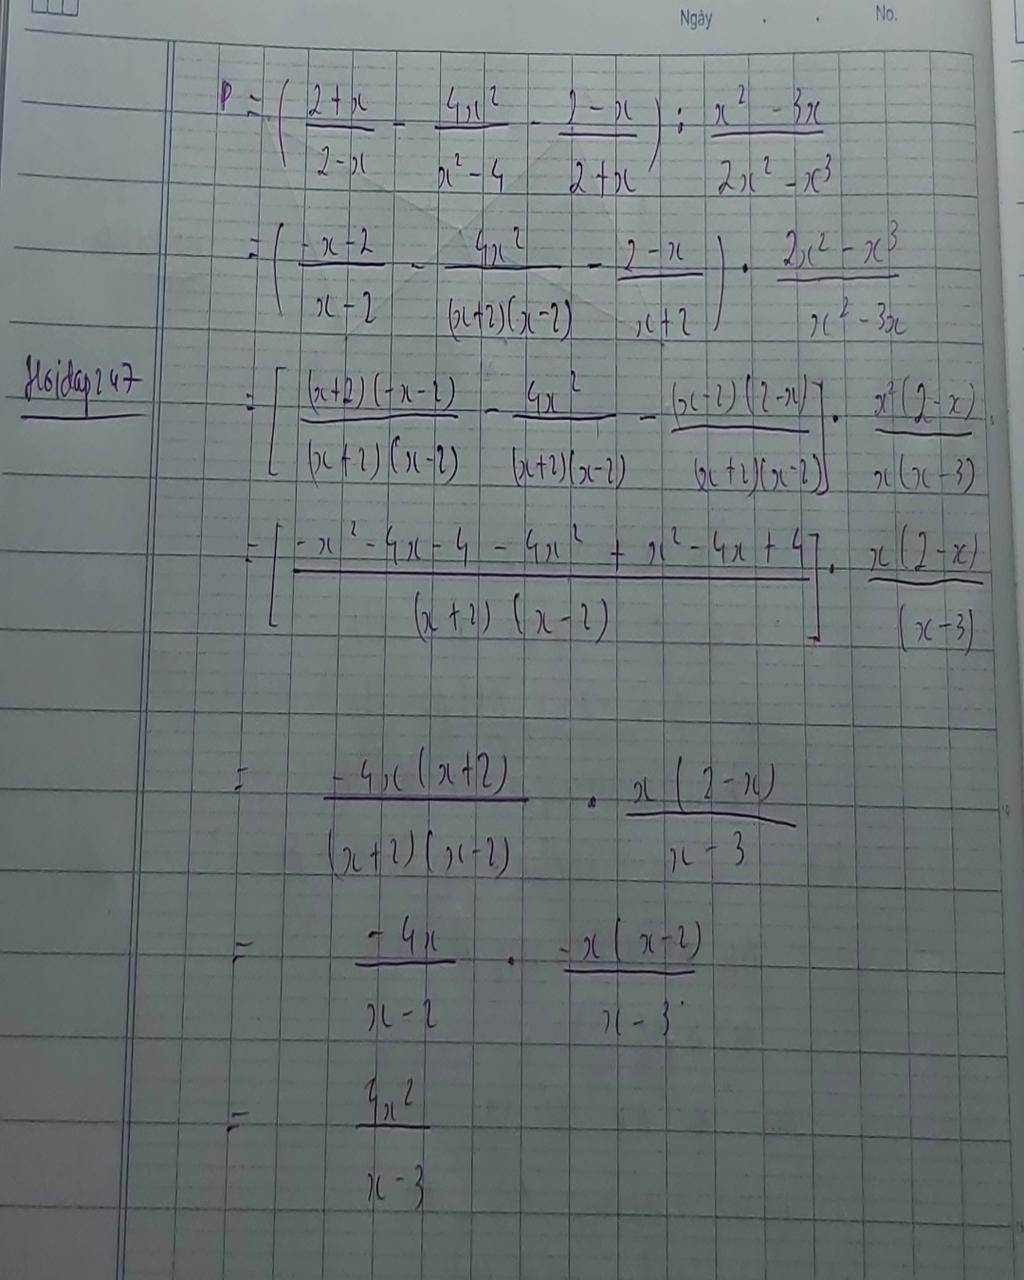 Ngày . . No.
P = ( (2+x)/(2-x) - 4x²/(x²-4) - (2-x)/(2+x) ) : (x²-3x)/(2x²-x³)
= ( (-x-2)/(x-2) - 4x²/((x+2)(x-2)) - (2-x)/(x+2) ) . (2x²-x³)/(x²-3x)
Hoidap247
= [ (x+2)(-x-2)/((x+2)(x-2)) - 4x²/((x+2)(x-2)) - (x-2)(2-x)/((x+2)(x-2)) ] . x²(2-x)/(x(x-3))
= [ (-x²-4x-4-4x²+x²-4x+4)/((x+2)(x-2)) ] . x(2-x)/(x-3)
= -4x(x+2)/((x+2)(x-2)) . x(2-x)/(x-3)
= -4x/(x-2) . -x(x-2)/(x-3)
= 4x²/(x-3)